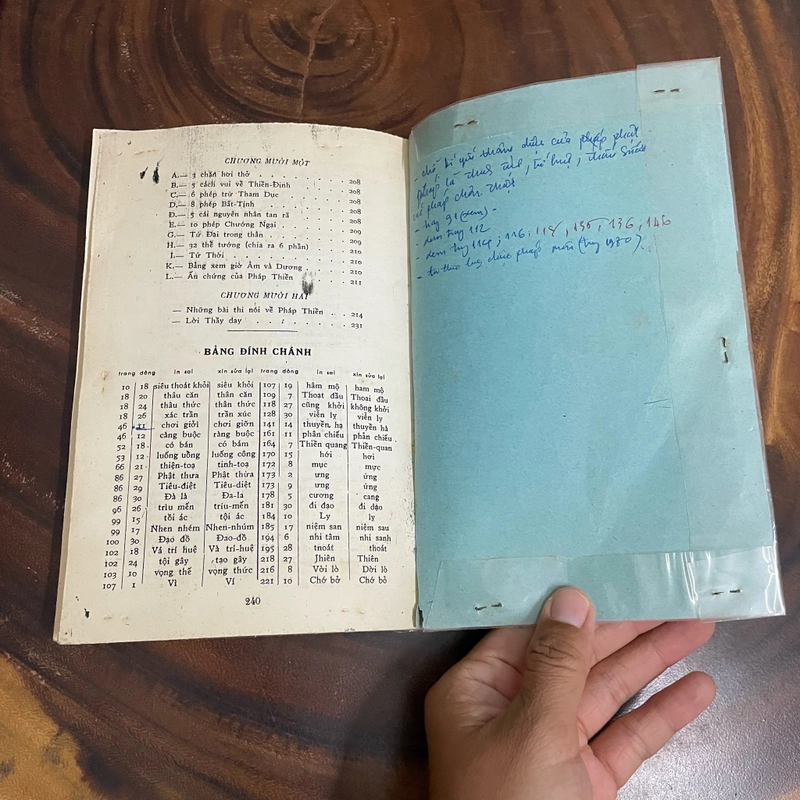 CHƯƠNG MƯỜI MỘT
A.— 3 chặn hơi thở . . . . 208
B.— 5 cách vui về Thiền-Định . . 208
C.— 6 phép trừ Tham Dục . . . 208
D.— 8 phép Bất-Tịnh . . . . 208
Đ.— 5 cái nguyên nhân tan rã . . 209
E.— 10 phép Chướng Ngại . . . 209
G.— Tứ Đại trong thân . . . . 209
H.— 32 thể tướng (chia ra 6 phần) . . 209
I.— Tứ Thời . . . . 210
K.— Bảng xem giờ Âm và Dương . . 210
L.— Ấn chứng của Pháp Thiền . . . 211
CHƯƠNG MƯỜI HAI
— Những bài thi nói về Pháp Thiền . . 214
— Lời Thầy dạy . . . . 231
BẢNG ĐÍNH CHÁNH
trang dòng in sai xin sửa lại trang dòng in sai xin sửa lại
10 18 siêu thoát khỏi siêu khỏi 107 19 hâm mộ ham mộ
18 20 thâu căn thân căn 109 7 Thoạt đầu Thoại đầu
18 24 thâu thức thân thức 118 27 cũng khởi không khởi
18 26 xác trần trần xúc 128 30 viễn ly viễn ly
46 21 chơi giởi chơi giỡn 141 14 thuyền hạ thuyền hà
46 12 càng buộc ràng buộc 161 11 phân chiếu phản chiếu
52 18 có bán có bám 164 7 Thiền quang Thiền quang
53 12 luống uồng luống công 170 15 hới hơi
66 21 thiện-toạ tịnh-toạ 172 8 mục mực
86 27 Phật thưa Phật thừa 173 2 ưng ứng
86 29 Tiêu-điệt Tiêu-diệt 173 9 ưng ứng
86 30 Đà là Đa-la 178 5 cương cang
96 26 trìu mển trìu-mến 181 30 đi đạo đi dạo
99 15 tồi ác tội ác 184 10 Ly ly
99 17 Nhen nhém Nhen-nhúm 185 17 niệm san niệm sau
100 30 Đạo đồ Đạo-đồ 194 6 nhi tâm nhi sanh
102 18 Vả trí huệ Và trí-huệ 195 28 tnoát thoát
102 24 tội gây tạo gây 218 27 Jhiên Thiên
103 10 vọng thể vọng thức 216 8 Vời lò Dời lò
107 1 Vì Ví 221 10 Chớ bỏ Chớ bỏ
240
của pháp
pháp là
pháp chân thật
- 91 (xem) -
- 112
- 114, 116, 118, 130, 136, 146
- (1980).